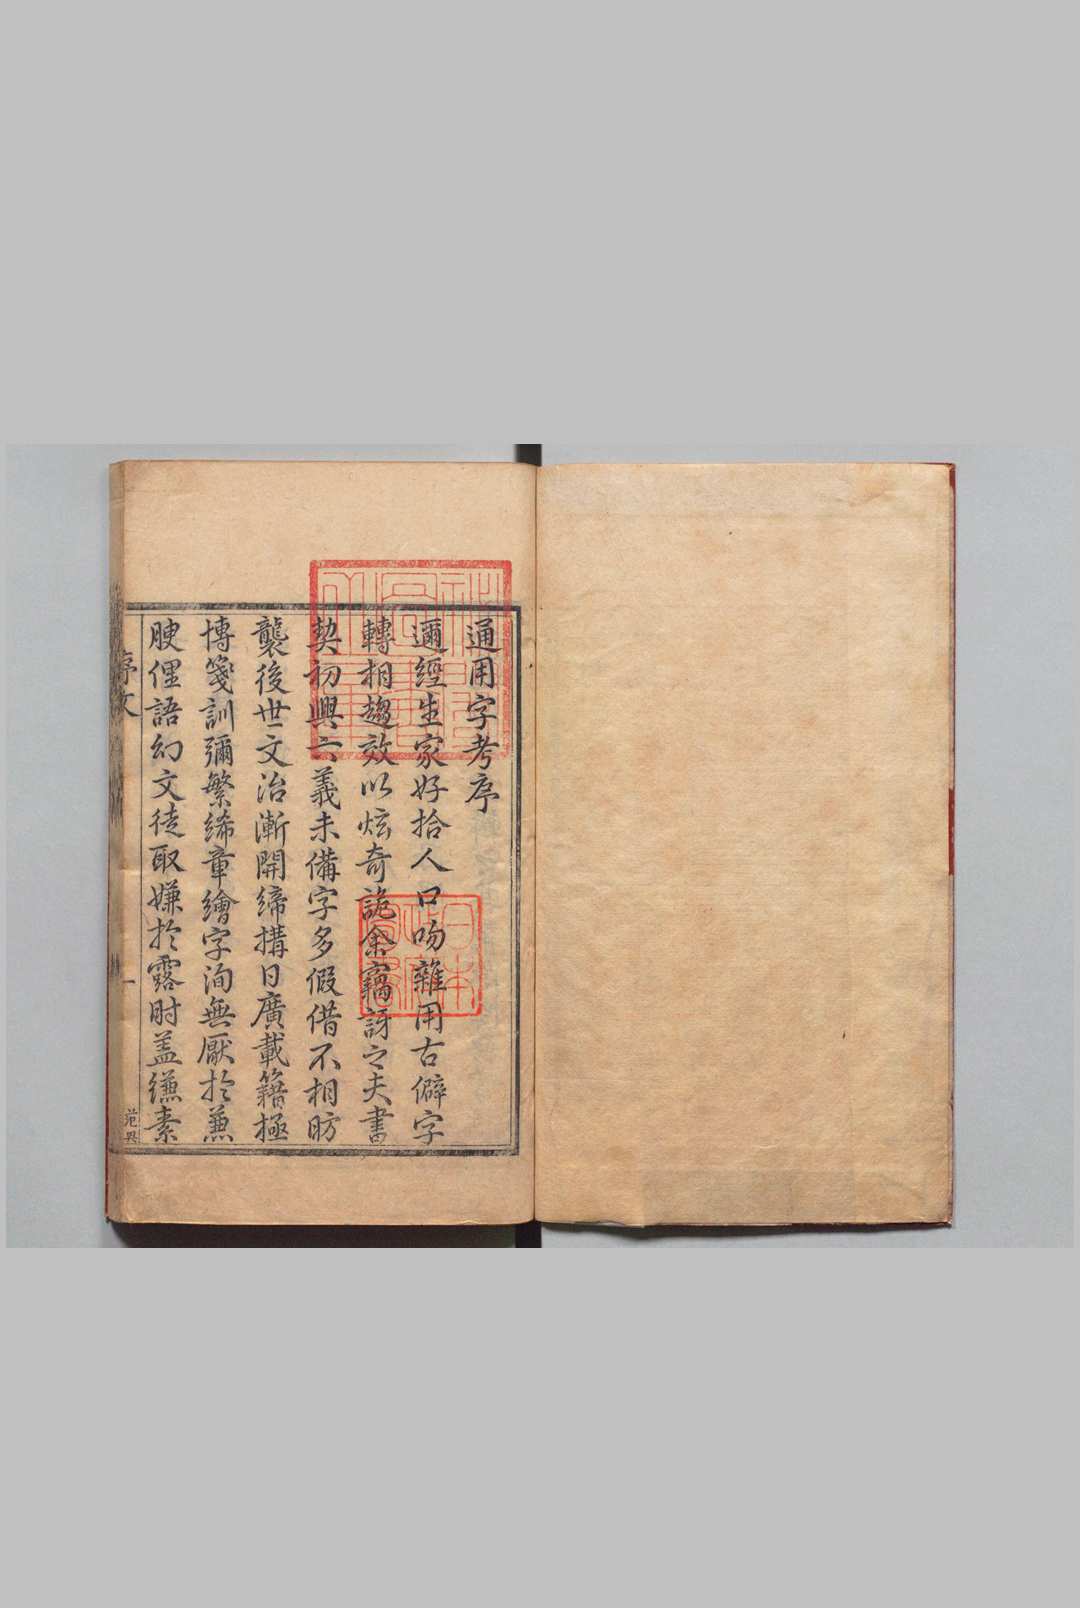 通用字考序
邇經生家好拾人口吻雜用古僻字
轉相趨效以炫奇詭余竊訝之夫書
契初興六義未備字多假借不相昉
襲後世文治漸開締搆日廣載籍極
博箋訓彌繁絺章繪字洵無厭於蒹
腴俚語幻文徒取嫌於露肘盖縑素
序文
一
日本